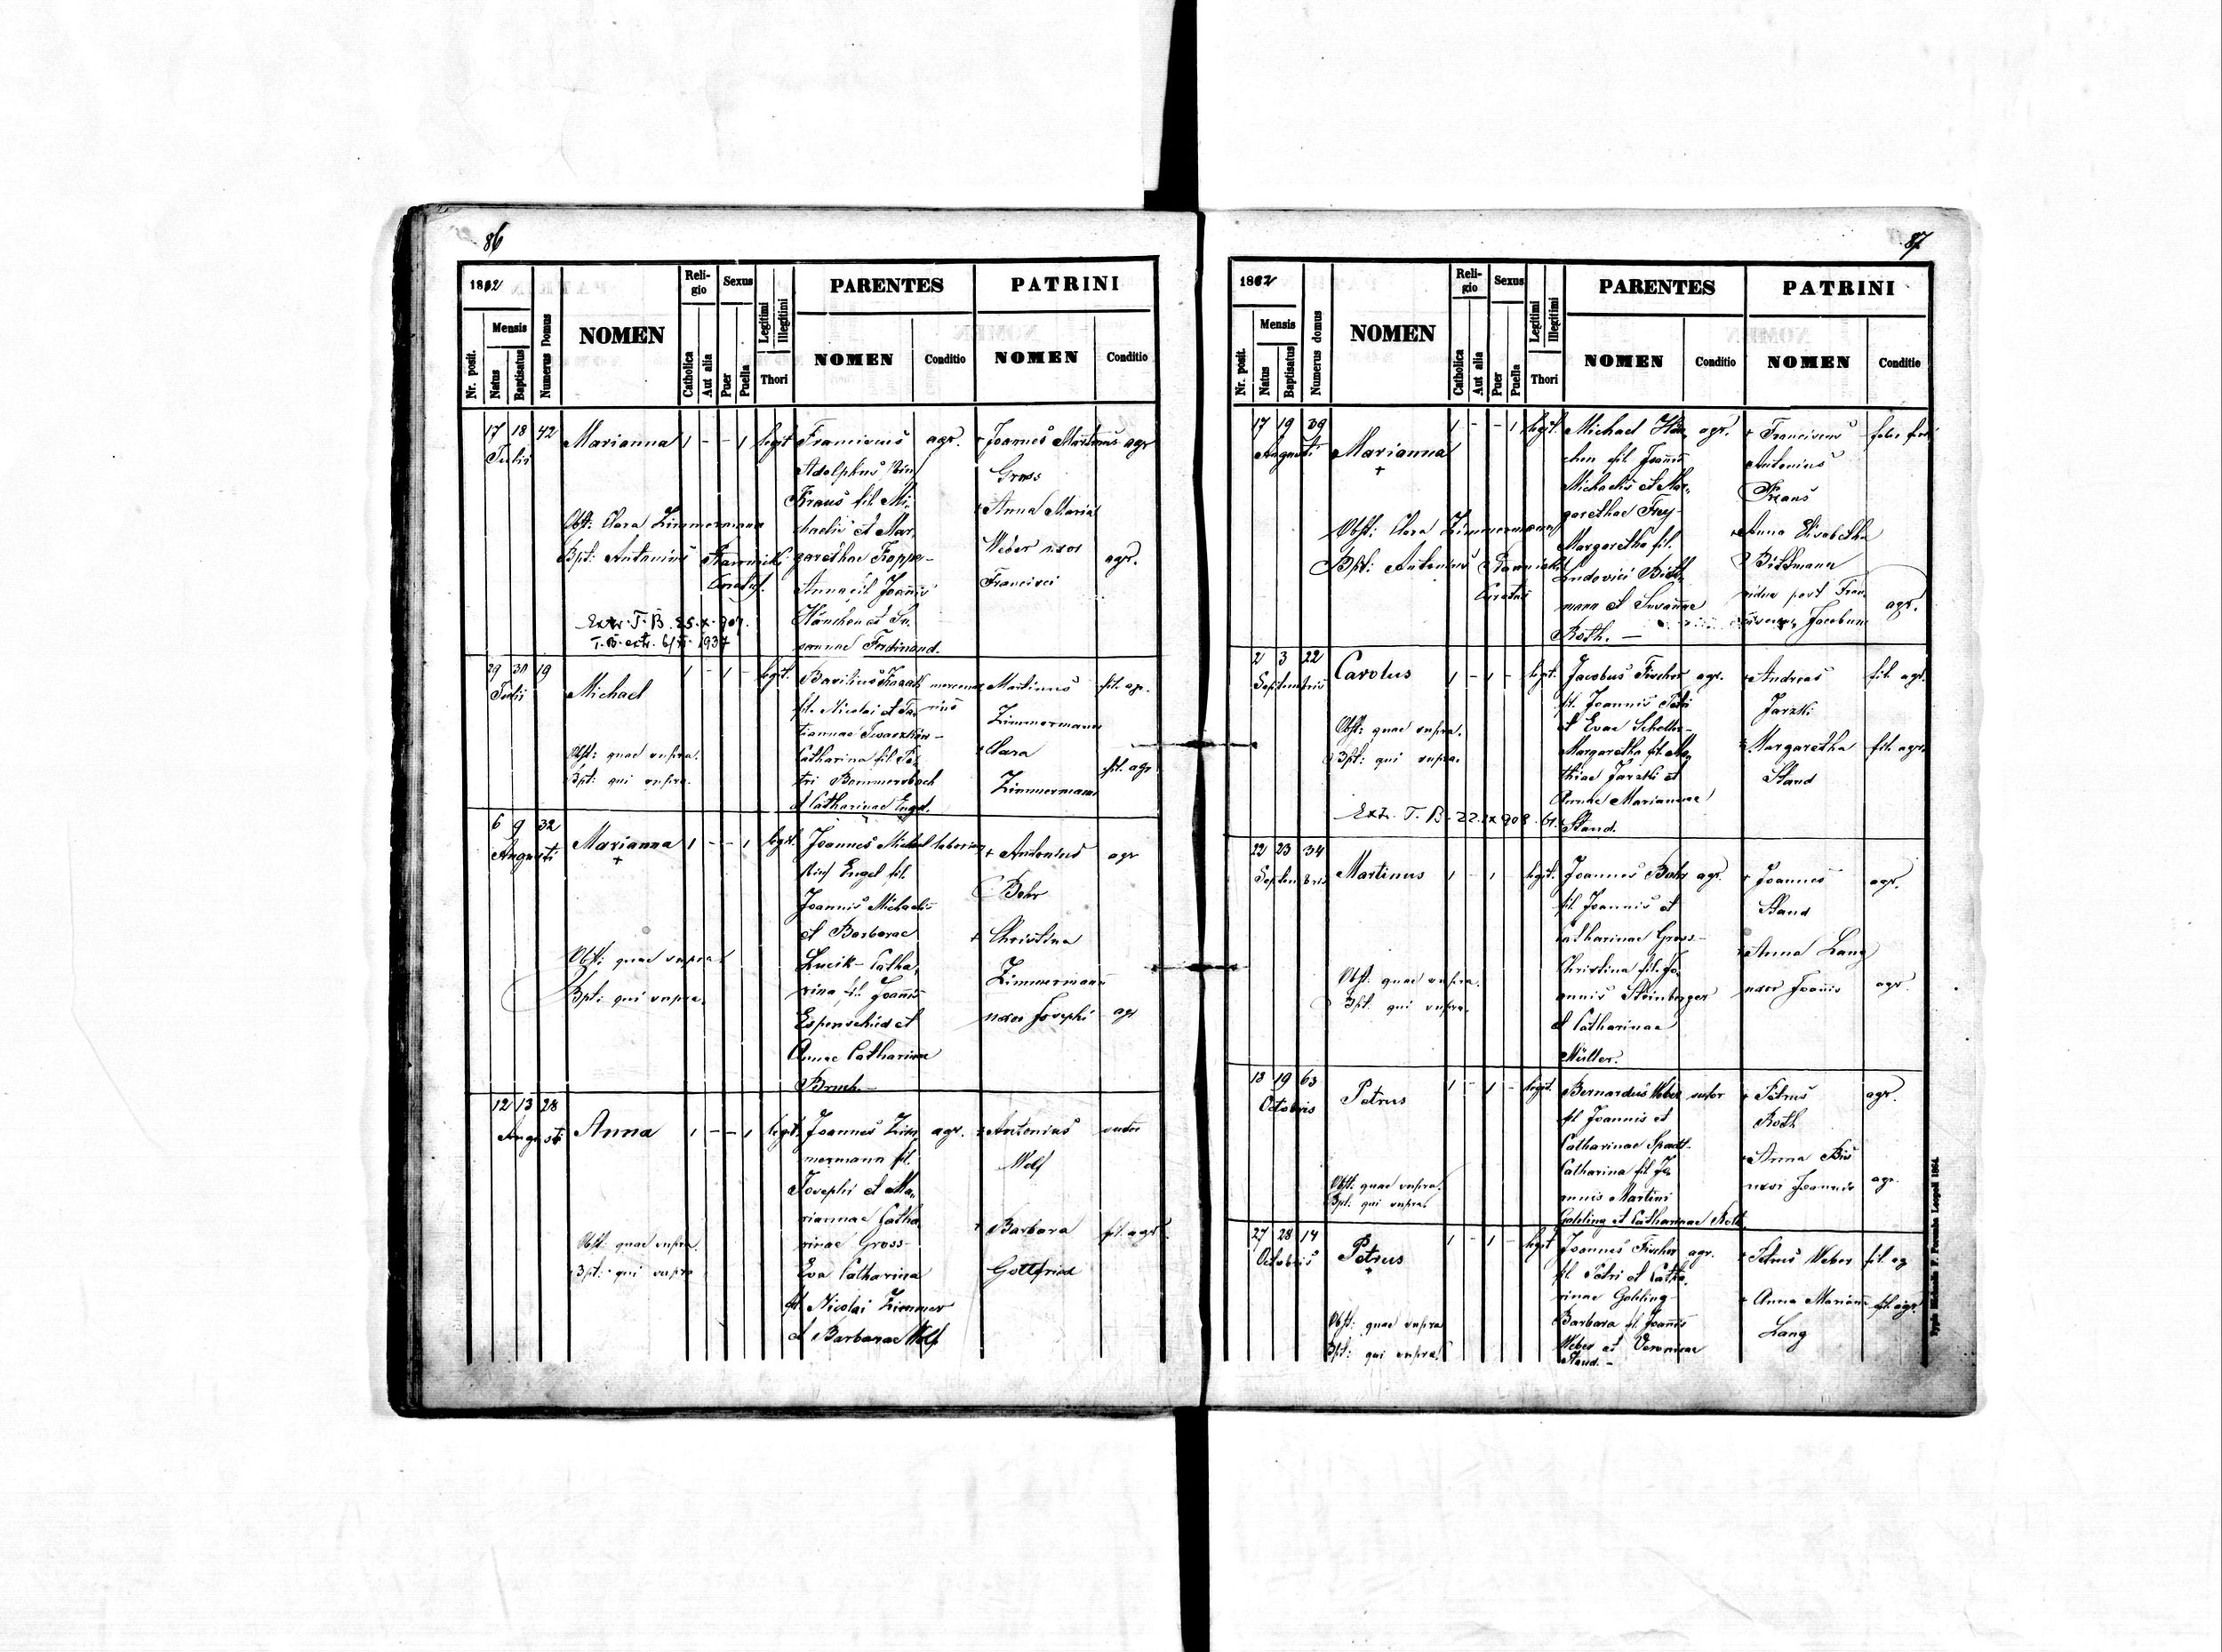 86
1862
Nr. posit.
Mensis
Natus
Baptisatus
Numerus Domus
NOMEN
Reli-
gio
Catholica
Aut alia
Sexus
Puer
Puella
Legitimi
Illegitimi
Thori
PARENTES
NOMEN
Conditio
PATRINI
NOMEN
Conditio
17 18 42
Julii
Marianna 1 - - 1 legit
Obst: Clara Zimmermann
Bpt: Antonius
Curatus.
Extr. T. B. 25. X. 907.
T. B. extr. 6/XI. 1937
Franciscus agr.
Adolphus
Kraus fil. Mi-
chaelis et Mar-
garethae
Anna fil. Joannis
Hänchen et Su-
sannae Ferdinand.
Joannes Martinus agr
Gross
Anna Maria
Weber uxor
Francisci
agr.
29 30 19
Julii
Michael 1 - 1 - legit.
Obst: quae supra.
Bpt: qui supra.
Basilius
fil. Nicolai et Ta-
tiannae
Catharina fil. Pe-
tri Bommersbach
et Catharinae Engel.
Martinus fil. agr.
Zimmermann
Clara
Zimmermann
fil. agr
6 9 32
Augusti
Marianna 1 - - 1 legit.
+
Obst: quae supra
Bpt: qui supra.
Joannes Michael
Engel fil.
Joannis Michaelis
et Barbarae
Lucik - Catha-
rina fil. Joannis
Espenschied et
Annae Catharinae
Bruch. -
Antonius agr
Behr
Christina
Zimmermann
uxor Josephi agr
12 13 28
Augusti
Anna 1 - - 1 legit.
Obst: quae supra.
Bpt: qui supra
Joannes Zim- agr.
mermann fil.
Josephi et Ma-
riannae Catha-
rinae Gross-
Eva Catharina
fil. Nicolai Zimmer
et Barbarae Wolf
Antonius sutor
Wolf
Barbara fil. agr.
Gottfried
87
1862
Nr. posit.
Mensis
Natus
Baptisatus
Numerus domus
NOMEN
Reli-
gio
Catholica
Aut alia
Sexus
Puer
Puella
Legitimi
Illegitimi
Thori
PARENTES
NOMEN
Conditio
PATRINI
NOMEN
Conditio
17 19 39
Augusti
Marianna 1 - - 1 legit.
+
Obst: Clara Zimmermann
Bpt: Antonius
Curatus
Michael Hän- agr.
chen fil. Joannis
Michaelis et Mar-
garethae Frey-
Margaretha fil.
Ludovici Bitt-
mann et Susannae
Roth. -
Franciscus
Antonius
Kraus
Anna Elisabetha
Bittmann
vidua post
Jacobum
agr.
2 3 22
Septembris
Carolus 1 - 1 - legit.
Obst: quae supra.
Bpt: qui supra.
Extr. T. B. 22. IX 908.
Jacobus Fischer agr.
fil. Joannis Petri
et Evae Scheller-
Margaretha fil. Ma-
thiae Jarzki et
Annae Mariannae
Stand.
Andreas fil. agr.
Jarzki
Margaretha fil. agr.
Stand
22 23 34
Septembris
Martinus 1 - 1 - legit.
Obst: quae supra.
Bpt. qui supra.
Joannes Behr agr.
fil. Joannis et
Catharinae Gross-
Christina fil. Jo-
annis Steinberger
et Catharinae
Müller.
Joannes agr.
Stand
Anna Lang
uxor Joannis agr.
13 19 63
Octobris
Petrus 1 - 1 - legit.
Obst: quae supra.
Bpt. qui supra.
Bernardus Weber sutor
fil Joannis et
Catharinae
Catharina fil. Jo-
annis Martini
Gohling et Catharinae Roth.
Petrus agr.
Roth
Anna
uxor Joannis agr.
27 28 14
Octobris
Petrus 1 - 1 - legit
+
Obst: quae supra
Bpt: qui supra.
Joannes Fischer agr.
fil. Petri et Catha-
rinae Gohling-
Barbara fil. Joannis
Weber et Veronicae
Stand. -
Petrus Weber fil. ag
Anna Marianna fil. agr.
Lang